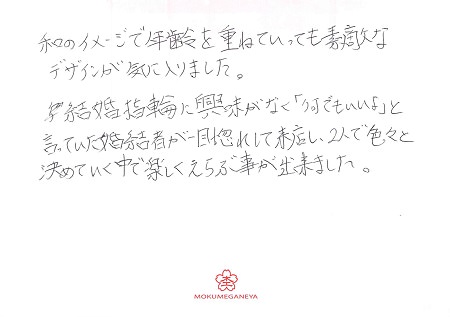 和のイメージで年齢を重ねていっても素敵な
デザインが気に入りました。
結婚指輪に興味がなく「何でもいいよ」と
言っていた婚結者が一目惚れして来店し、2人で色々と
決めていく中で楽しくえらぶ事が出来ました。
MOKUMEGANEYA